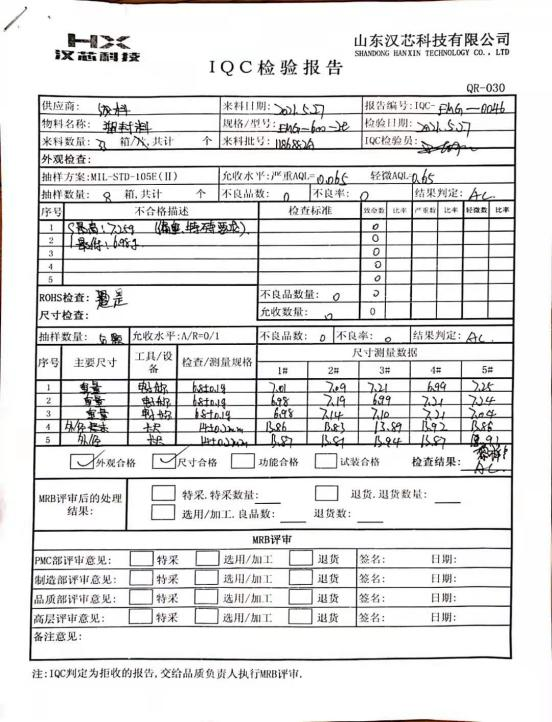 HX
汉芯科技
山东汉芯科技有限公司
SHANDONG HANXIN TECHNOLOGY CO., LTD
IQC检验报告
QR-030
供应商: 来料日期: 2021.5.27 报告编号:IQC- EMG-0046
物料名称: 塑封料 规格/型号: EMG-600-2C 检验日期: 2021.5.27
来料数量: 箱/ 共计 个 来料批号: IQC检验员:
外观检查:
抽样方案:MIL-STD-105E(II) 允收水平: 重AQL= 0.065 轻微AQL= 0.65
抽样数量: 8 箱,共计 个 不良品数: 0 不良率: 0 结果判定: AC
序号 不合格描述 检查标准 致命数 比率 严重数 比率 轻微数 比率
1 最高: 7.25g (偏重,特殊要求) 0
2 最低: 6.98g 0
3 0
4 0
5 0
ROHS检查: 不良品数量: 0 0
尺寸检查: 允收数量: 0 0
抽样数量: 5颗 允收水平:A/R=0/1 不良品数: 0 不良率: 0 结果判定: AC
序号 主要尺寸 工具/设备 检查/测量规格 尺寸测量数据
1# 2# 3# 4# 5#
1 重量 6.8±0.1g 7.01 7.09 7.21 6.99 7.25
2 重量 6.8±0.1g 6.98 7.19 6.99 7.21 7.24
3 重量 6.8±0.1g 6.98 7.14 7.10 7.21 7.04
4 卡尺 14±0.2mm 13.86 13.83 13.89 13.92 13.86
5 外径 卡尺 14±0.2mm 13.87 13.81 13.94 13.87 13.91
外观合格 尺寸合格 功能合格 试装合格 检查结果: AC
MRB评审后的处理结果: 特采.特采数量: 退货.退货数量:
选用/加工.良品数: 退货数:
MRB评审
PMC部评审意见: 特采 选用/加工 退货 签名: 日期:
制造部评审意见: 特采 选用/加工 退货 签名: 日期:
品质部评审意见: 特采 选用/加工 退货 签名: 日期:
高层评审意见: 特采 选用/加工 退货 签名: 日期:
备注意见:
注:IQC判定为拒收的报告,交给品质负责人执行MRB评审.